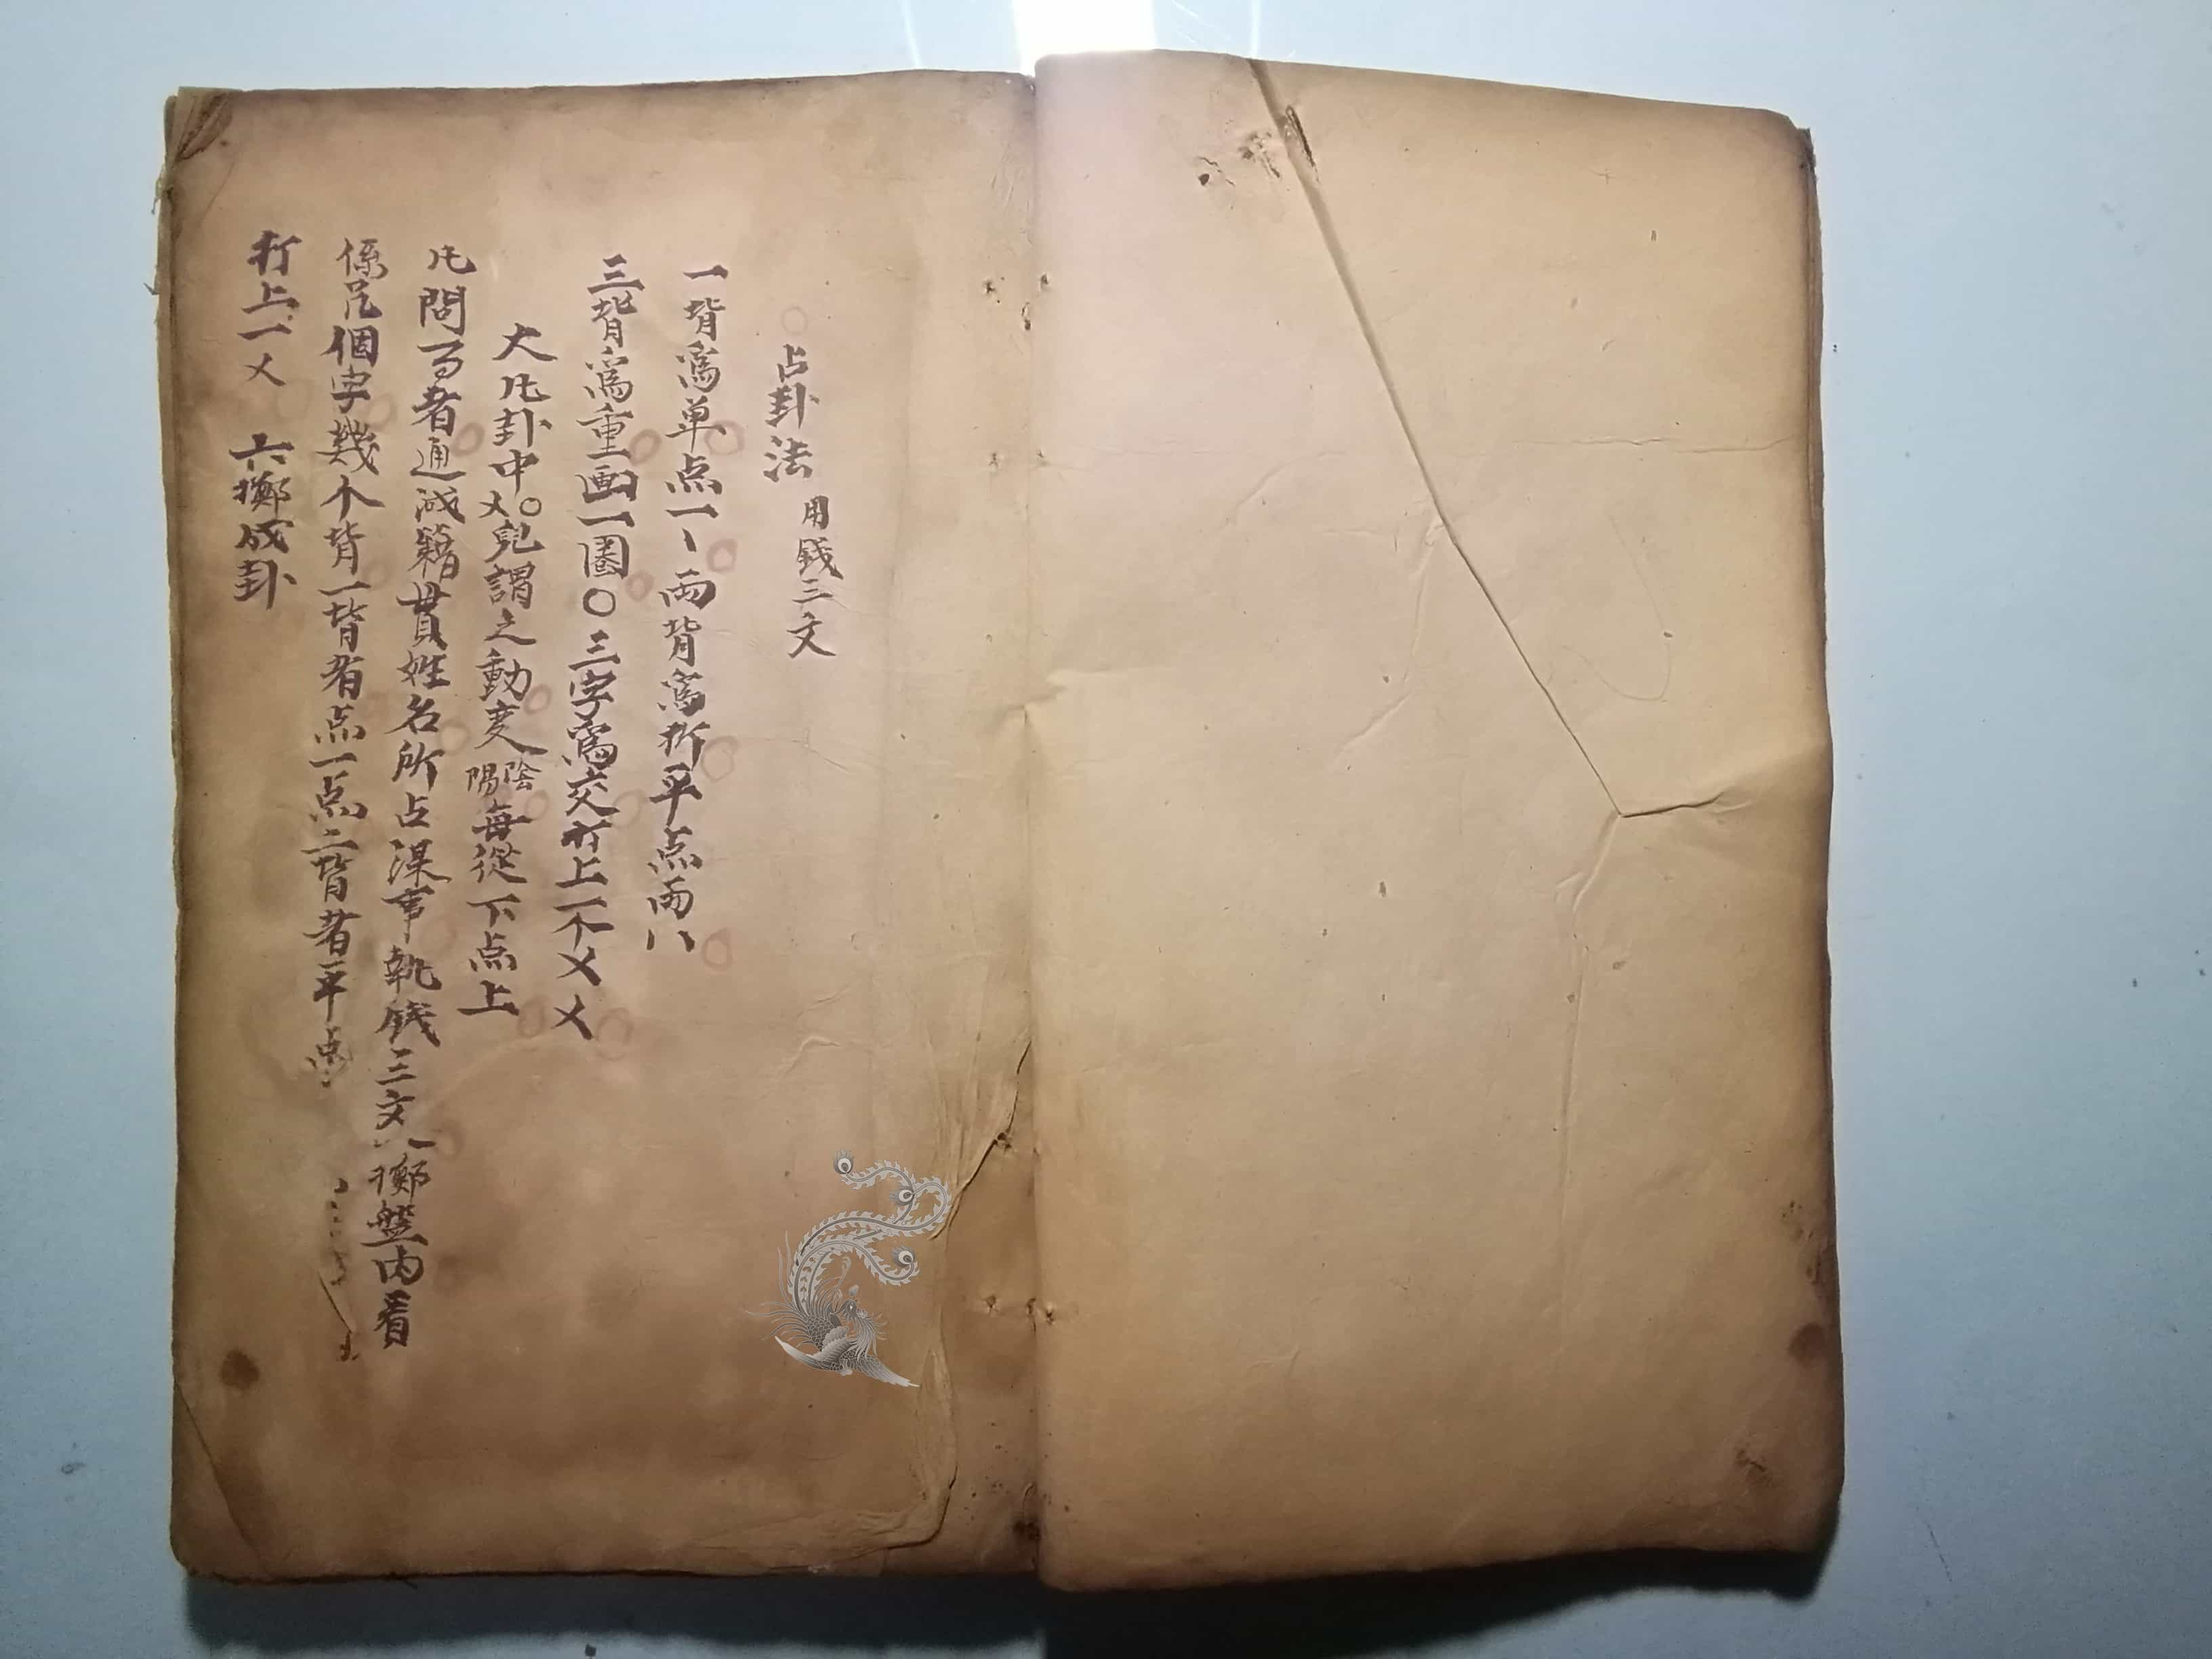 占卦法 用錢三文
一背為单点一丶两背為折平点两八
三背為重画一圈〇三字為交打上一个乂乂
大凡卦中乂〇兒謂之動变陰陽每從下点上
凡問者通誠籍貫姓名所占某事執錢三文擲盤内看
係凡個字幾个背一背者点一点二背者平点
打上一乂 六擲成卦